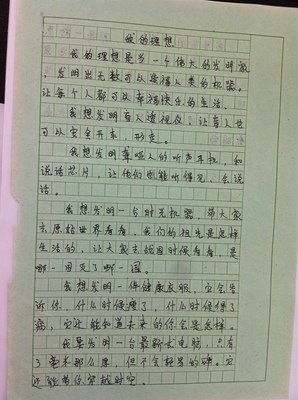 我的理想
我的理想是当一个伟大的发明家
，发明出无数可以造福人类的机器。
让每个人都可以幸福快乐的生活。
我想发明盲人透视仪，让盲人也
可以安全开车，行走。
我想发明聋哑人的听声耳机，和
说话芯片，让他们也能听得见，会说
话。
我想发明一台时光机器，带大家
去原始世界看看，我们的祖先是怎样
生活的，让大家去战国时候看看，是
哪一国灭了哪一国。
我想发明一件健康衣服，它会告
诉你，什么时候瘦了，什么时候得了
病，它还能知道未来的你会是怎样。
我要发明一台最新款电脑，只有
3毫米那么厚，但不会轻易的碎。它
还能带你穿越时空。